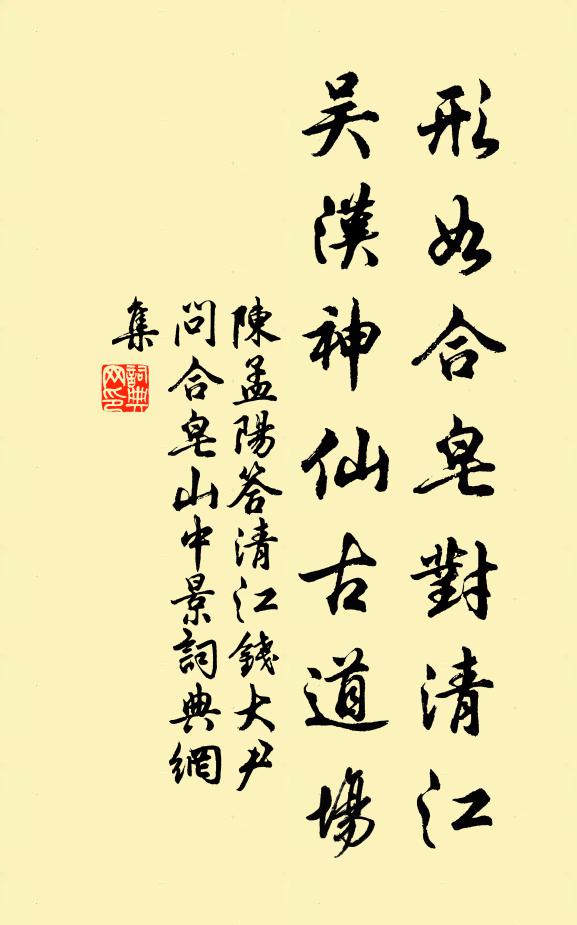 形如合皂對清江
吳漢神仙古道場
陳孟陽答清江錢大尹
問合皂山中景詞典網
集
詞典網印